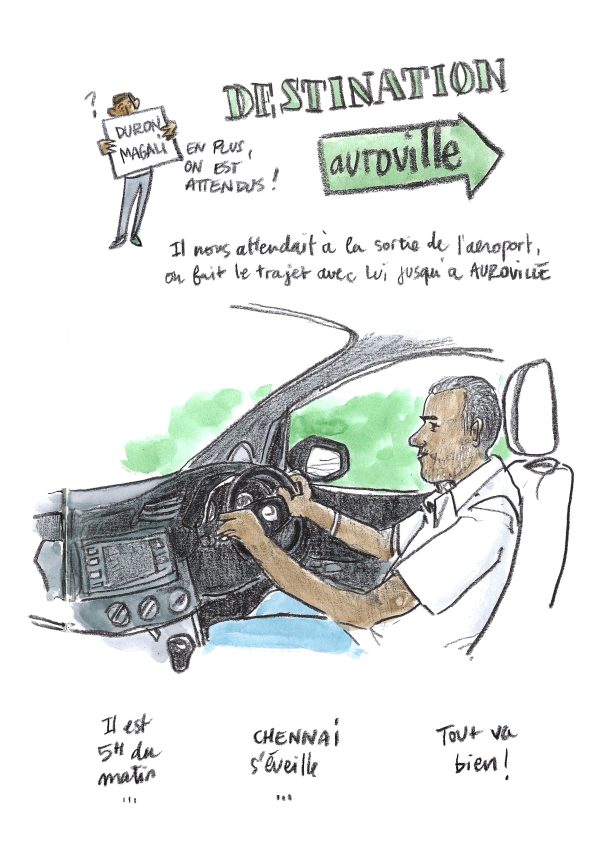 DESTINATION
auroville
?
DURON
MAGALI
EN PLUS,
ON EST
ATTENDUS !
Il nous attendait à la sortie de l'aeroport,
on fait le trajet avec lui jusqu'a AUROVILLE
Il est
5H du
matin
...
CHENNAI
s'éveille
...
Tout va
bien !